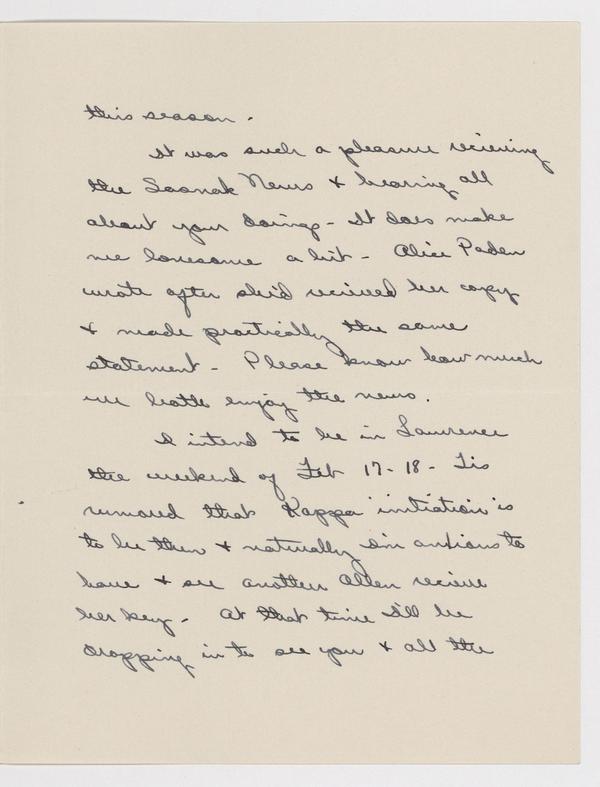 this season.
It was such a pleasure recieving
the Soonak News & hearing all
about your doings - It does make
me lonesome a bit - Alice Paden
wrote after she'd recieved her copy
& made practically the same
statement - Please know how much
we both enjoy the news.
I intend to be in Lawrence
the weekend of Feb 17-18 - Tis
rumored that Kappa initiation is
to be then & naturally I'm anxious to
have & see another Allen recieve
her key - At that time I'll be
dropping in to see you & all the